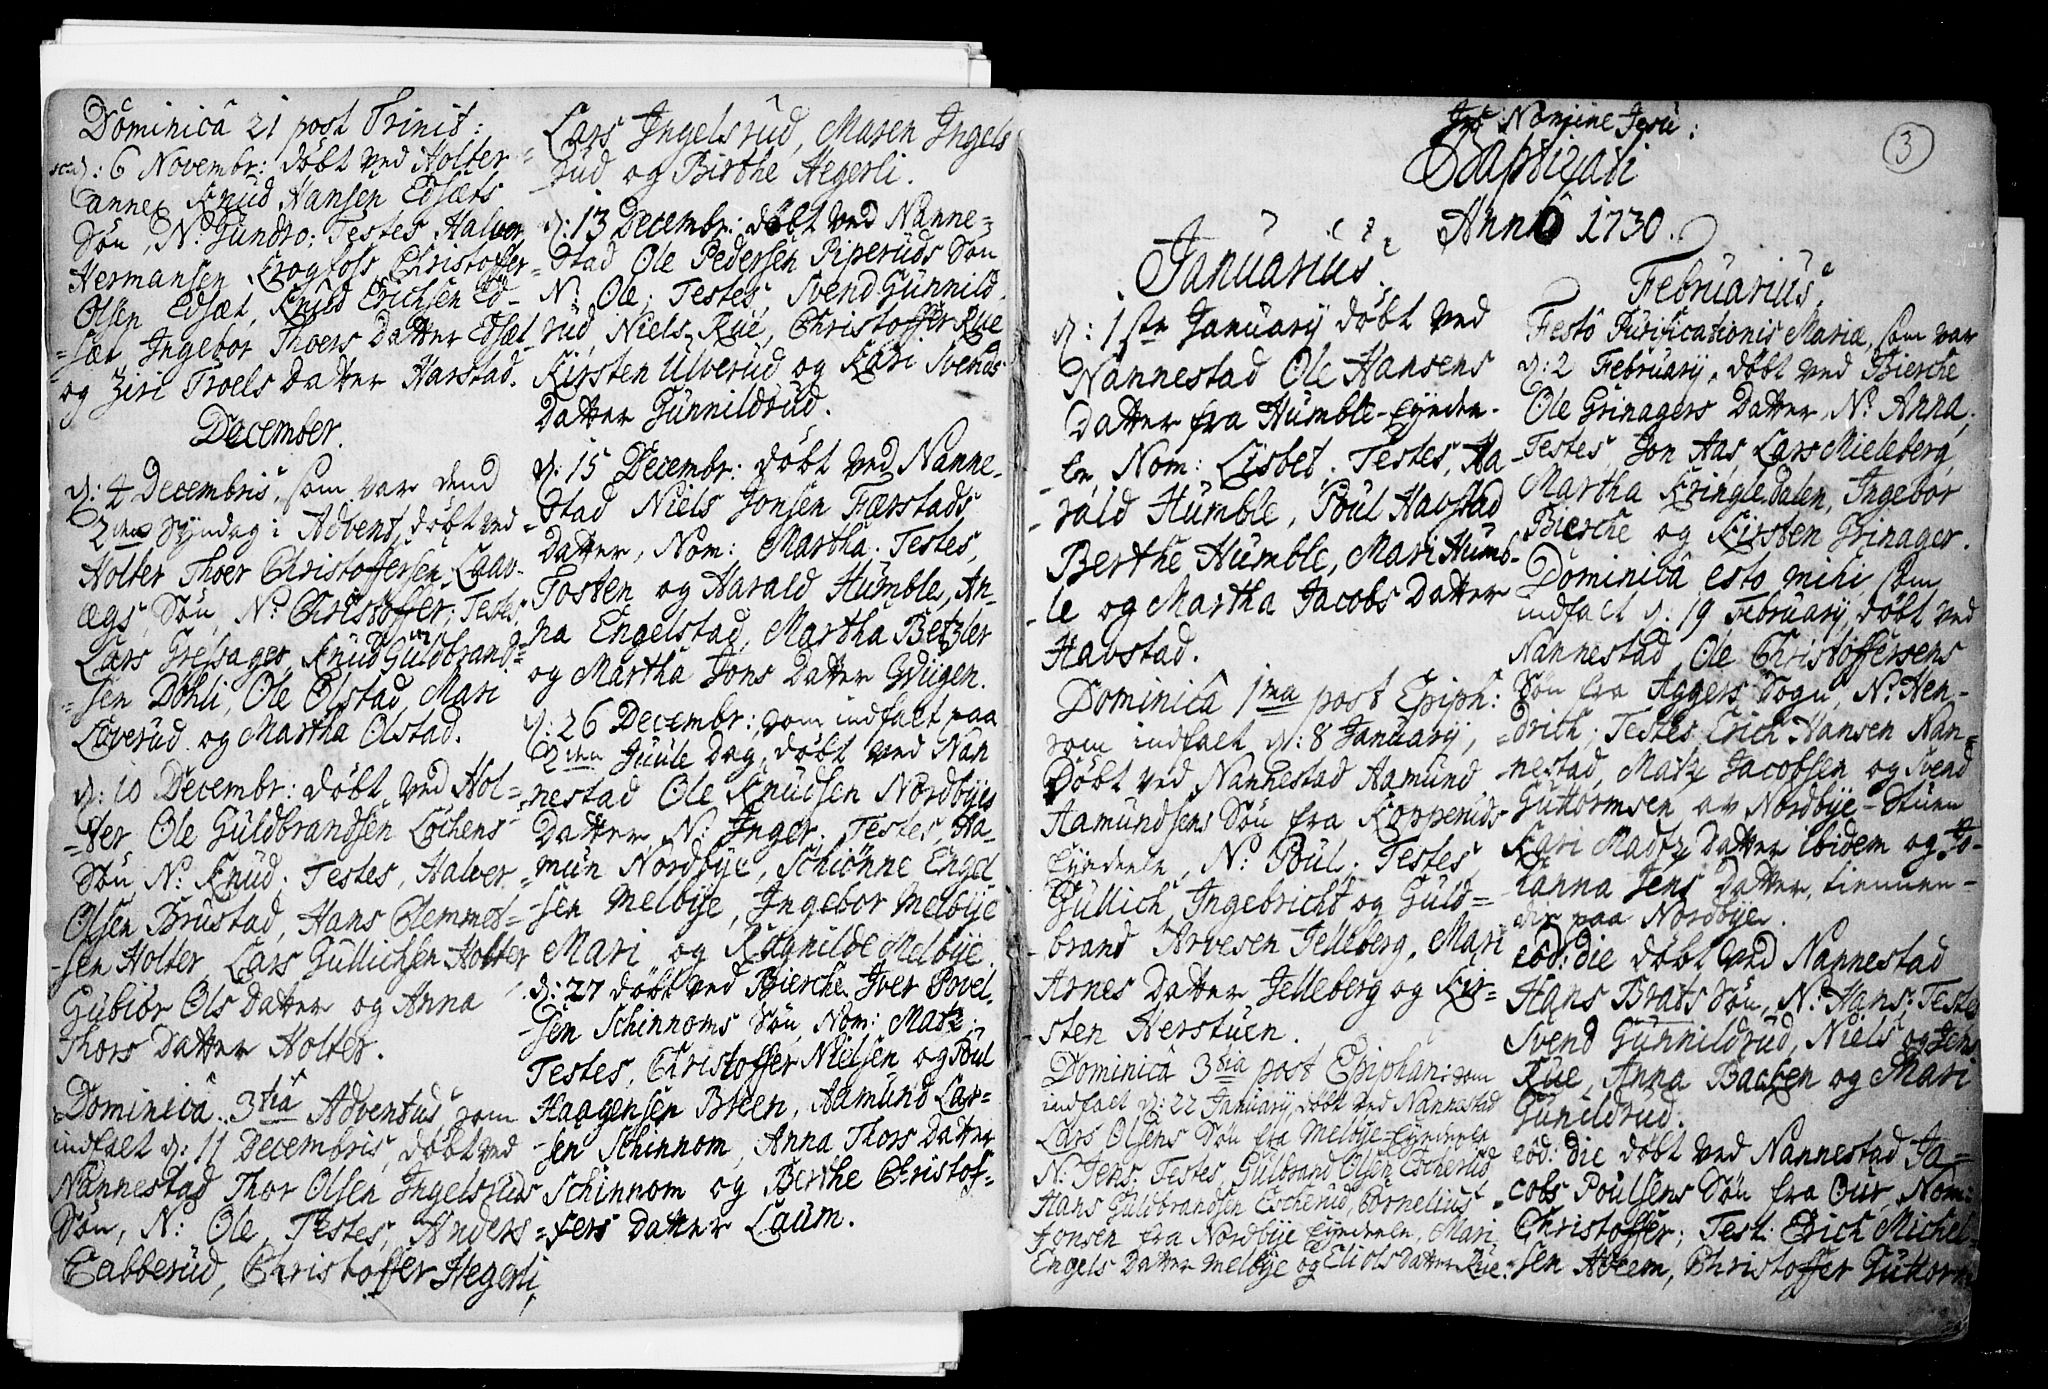 Dominica 21 post Trinit:
d: 6 Novembr: døbt ved Holter
annex Knud Hansen Edsæts
Søn, N: Gundro: Testes Halvor
Hermansen Krogfoss, Christoffer
Olsen Edsæt, Knud Erichsen Ed-
=sæt Ingebor Thoers Datter Edsæt
og Ziri Troels Datter Harstad.
December.
d: 4 Decembris, som var dend
2den Syndag i Advent, døbt ved
Holter Thoer Christoffersen Laav-
ægs Søn, N: Christoffer; Testes,
Lars Gressager, Knud Guldbrand=
=sen Døhli, Ole Olstad, Mari
Løverud og Martha Olstad.
d: 10 Decembr: døbt ved Hol-
=ter, Ole Guldbrandsen Lochens
Søn, N: Knud; Testes, Halvor
Olsen Brustad, Hans Clemmet-
-sen Holter, Lars Gullichsen Holter
Gubiør Ols Datter og Anna
Thors Datter Holter.
Dominica 3tia Adventus som
indfalt d: 11 Decembris, døbt ved
Nannestad Thor Olsen Ingelsruds
Søn, N: Ole, Testes, Anders
Cabberud, Christoffer Hegerli,
Lars Ingelsrud, Maren Ingels
rud og Birthe Hegerli.
d: 13 Decembr: døbt ved Nanne=
Stad Ole Pedersen Piperuds Søn
N: Ole; Testes, Svend Gunnild-
rud, Niels Rue, Christoffer Rue
Kirsten Ulverud og Kari Svends
Datter Gunnildrud.
d: 15 Decembr: døbt ved Nanne-
Stad Niels Jonsen Færstads
Datter, Nom: Martha. Testes,
Tosten og Harald Humble, An-
na Engelstad, Martha Betzler
og Martha Jons Datter Wiigen.
d: 26 Decembr: som indfalt paa
2den Juule Dag, døbt ved Nan
nestad Ole Knudsen Nordbyes
Datter, N: Inger; Testes, Aa-
=mun Nordbye, Schiønne Engel
-sen Melbye, Ingebor Melbye
Mari og Ragnilde Melbye.
d: 27 døbt ved Bierche Iver Povel-
sen Schinnoms Søn, Nom: Matz;
Testes, Christoffer Nielsen og Poul
Haagensen Breen, Aamund Lar-
-sen Schinnom, Anna Thors Datter
Schinnom og Berthe Christof-
=fers Datter Laum.
3
Nomine Jesu:
Baptizati
Anno 1730.
Januarius.
d: 1ste January døbt ved
Nannestad Ole Hansens
Datter fra Humble-Eyede-
-le, Nom: Lisbet. Testes, Ha
-rald Humble, Poul Havstad
Berthe Humble, Mari Humb-
-le og Martha Jacobs Datter
Havstad.
Dominica 1ma post Epiph:
som indfalt d: 8 January,
Døbt ved Nannestad Aamund
Aamundsens Søn fra Kopperuds
Eyedele, N: Poul. Testes,
Gullich, Ingebricht og Guld=
brand Arvesen Jelleberg, Mari
Arnes Datter Jelleberg og Kir-
-sten Herstuen.
Dominica 3tia post Epiphan: som
indfalt d: 22 January, døbt ved Nannestad
Lars Olsens Søn fra Melbye-Eyedele
N: Jens; Testes, Gulbrand Olsen Escherud
Hans Guldbrandsen Escherud, Cornelius
Jonsen fra Nordbye Eyedele, Mari
Engels Datter Melbye og Eli Ols Datter Rue.
Februarius.
Festo Purificationis Mariæ, som var
d: 2 February, døbt ved Bierche
Ole Grinagers Datter, N: Anna,
Testes, Jon Aas, Lars Mieleberg,
Martha Kringledalen, Ingebor
Bierche og Kirsten Grinager.
Dominica esto mihi som
indfalt d: 19 February, døbt ved
Nannestad Ole Christoffersens
Søn fra Aggers Sogn, N: Hen-
=drich; Testes Erich Hansen Nan=
nestad, Matz Jacobsen og Svend
Guttormsen av Nordbye-Stuen
Kari Madtz Datter ibidem og Jo-
hanna Jens Datter, tiennen-
de paa Nordbye.
eod: die døbt ved Nannestad
Hans Brats Søn, N: Hans; Testes
Svend Gunnildrud, Niels og Jens
Rue, Anna Bachen og Mari
Gunildrud.
eod: die døbt ved Nannestad Ja=
cobs Poulsens Søn fra Our, Nom:
Christoffer; Test: Erich Michel-
-sen Aaeem, Christoffer Guttorm